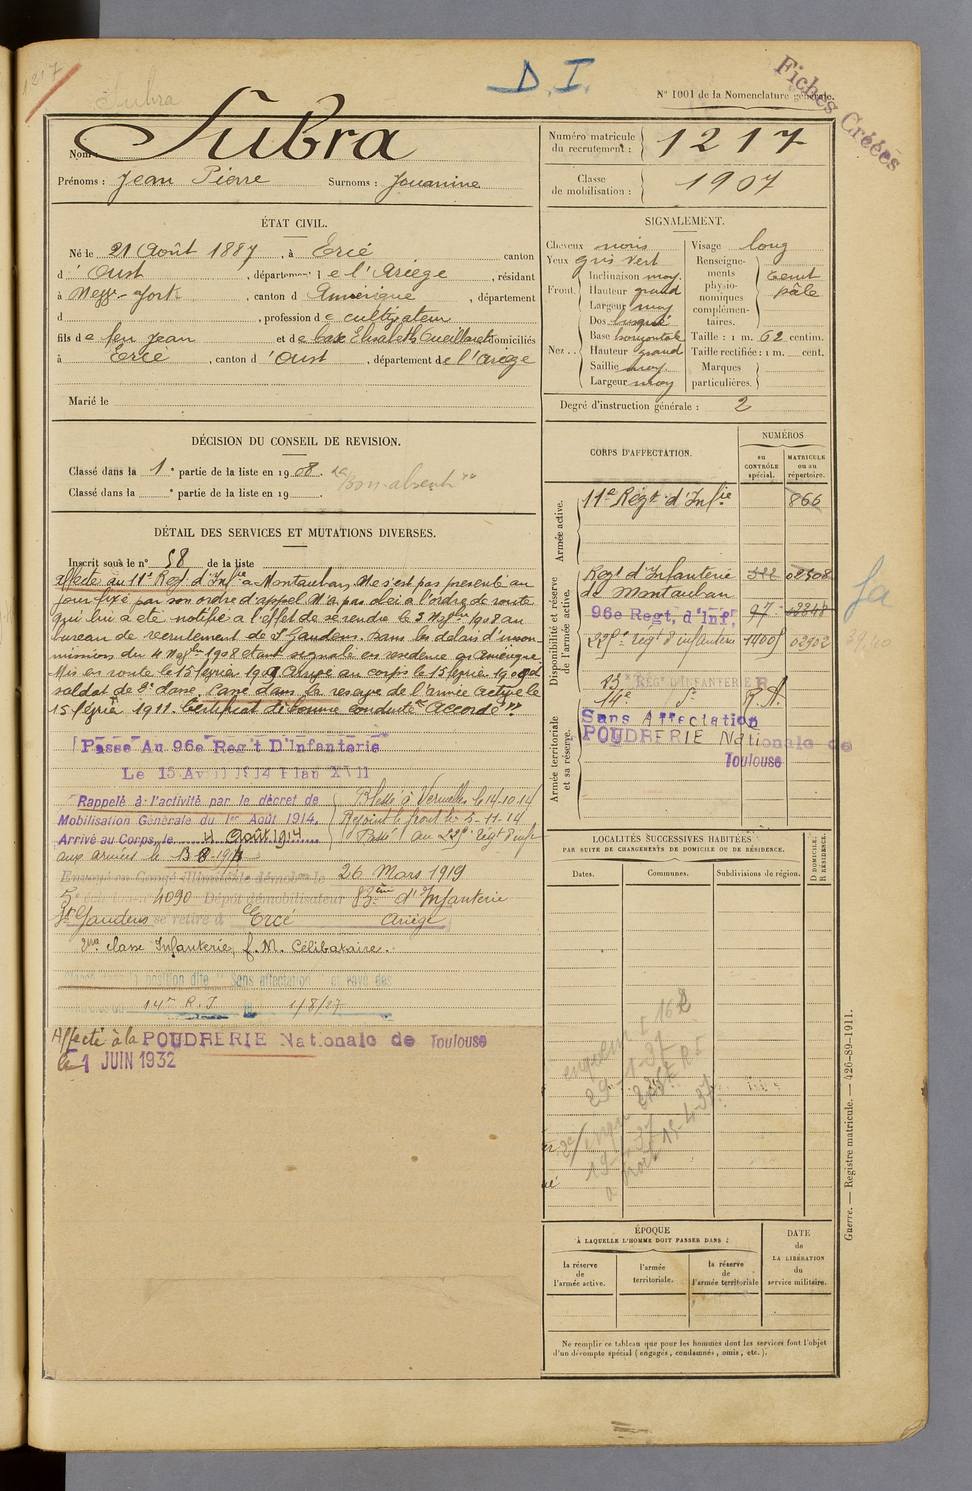 1217
Subra
D.I.
N° 1001 de la Nomenclature générale.
Fiches Créées
Nom : Subra
Prénoms : Jean Pierre Surnoms : Jouanine
Numéro matricule du recrutement : 1217
Classe de mobilisation : 1907
ÉTAT CIVIL.
Né le 21 Août 1887, à Ercé canton
d'Oust, département de l'Ariège, résidant
à New-York, canton d Amérique, département
d , profession de cultivateur
fils de feu Jean et de Elisabeth domiciliés
à Ercé, canton d'Oust, département de l'Ariège
Marié le
SIGNALEMENT.
Cheveux noirs
Yeux gris vert
Front. Inclinaison moy.
Hauteur grand
Largeur moy
Nez... Dos busqué
Base horizontale
Hauteur grand
Saillie moy.
Largeur moy
Visage long
Renseignements physionomiques complémentaires. teint pâle
Taille : 1 m. 62 centim.
Taille rectifiée : 1 m. cent.
Marques particulières.
Degré d'instruction générale : 2
DÉCISION DU CONSEIL DE REVISION.
Classé dans la 1e partie de la liste en 1908. "Bon absent"
Classé dans la e partie de la liste en 19
DÉTAIL DES SERVICES ET MUTATIONS DIVERSES.
Inscrit sous le n° 58 de la liste
affecté au 11e Regt d'Infie à Montauban, Ne s'est pas présenté au
jour fixé par son ordre d'appel. N'a pas obéi à l'ordre de route
qui lui a été notifié à l'effet de se rendre le 3 Novbre 1908 au
bureau de recrutement de St Gaudens. Dans les délais d'insou-
mission du 4 Novbre 1908 étant signalé en résidence en Amérique
Mis en route le 15 février 1909 Arrivé au corps le 15 février 1909 et
soldat de 2e classe. Passé dans la réserve de l'armée active le
15 février 1911. Certificat de bonne conduite "Accordé".
Passé Au 96e Reg't D'Infanterie
Le 15 Avril 1914 Plan XVII
Rappelé à l'activité par le décret de
Mobilisation Générale du 1er Août 1914.
Arrivé au Corps le 4 Août 1914
Blessé à Vermelles le 14-10-14
Rejoint le front le 5-11-14
Passé au 225e régt d'infie
aux armées le 13-8-1914
Envoyé en Congé illimité de démobon le 26 Mars 1919
5e échelon n° 4090 Dépôt démobilisateur 83ème d'Infanterie
St Gaudens se retire à Ercé Ariège
2me classe Infanterie, f.M. Célibataire.
Classé dans la position dite "Sans affectation" et rayé des
contrôles du 14e R.I le 1/8/27
Affecté à la POUDRERIE Nationale de Toulouse
le 1 JUIN 1932
CORPS D'AFFECTATION.
NUMÉROS
au CONTRÔLE spécial.
MATRICULE ou au répertoire.
Armée active.
11e Régt d'Infie 866
Disponibilité et réserve de l'armée active.
Regt d'Infanterie de Montauban 322 02308
96e Regt, d'Inf. 97
225e régt d'infanterie 02902
Armée territoriale et sa réserve.
RÉGT D'INFANTERIE
14e d° R.A.
Sans Affectation
POUDRERIE Nationale de
Toulouse
LOCALITÉS SUCCESSIVES HABITÉES
PAR SUITE DE CHANGEMENTS DE DOMICILE OU DE RÉSIDENCE.
Dates.
Communes.
Subdivisions de région.
D DOMICILE ; R RÉSIDENCE.
29-1-37
15-4-37
ÉPOQUE
À LAQUELLE L'HOMME DOIT PASSER DANS :
la réserve de l'armée active.
l'armée territoriale.
la réserve de l'armée territoriale
DATE de LA LIBÉRATION du service militaire.
Ne remplir ce tableau que pour les hommes dont les services font l'objet
d'un décompte spécial (engagés, condamnés, omis, etc.).
Guerre. — Registre matricule. — 426-89-1911.